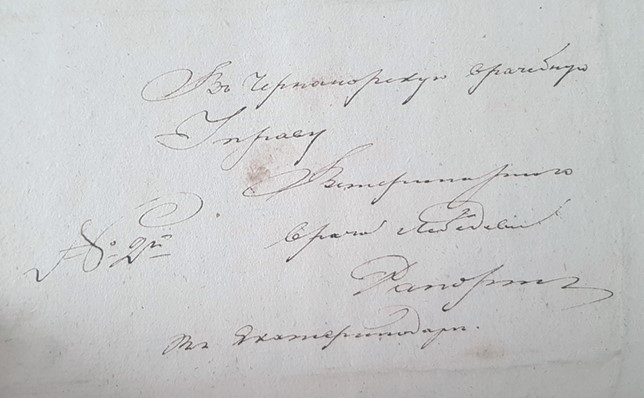 Въ Черноморскую врачебную
Управу
Ветеринарного
врача Лебедева
№ 2й
Рапортъ
въ Екатеринодаръ.